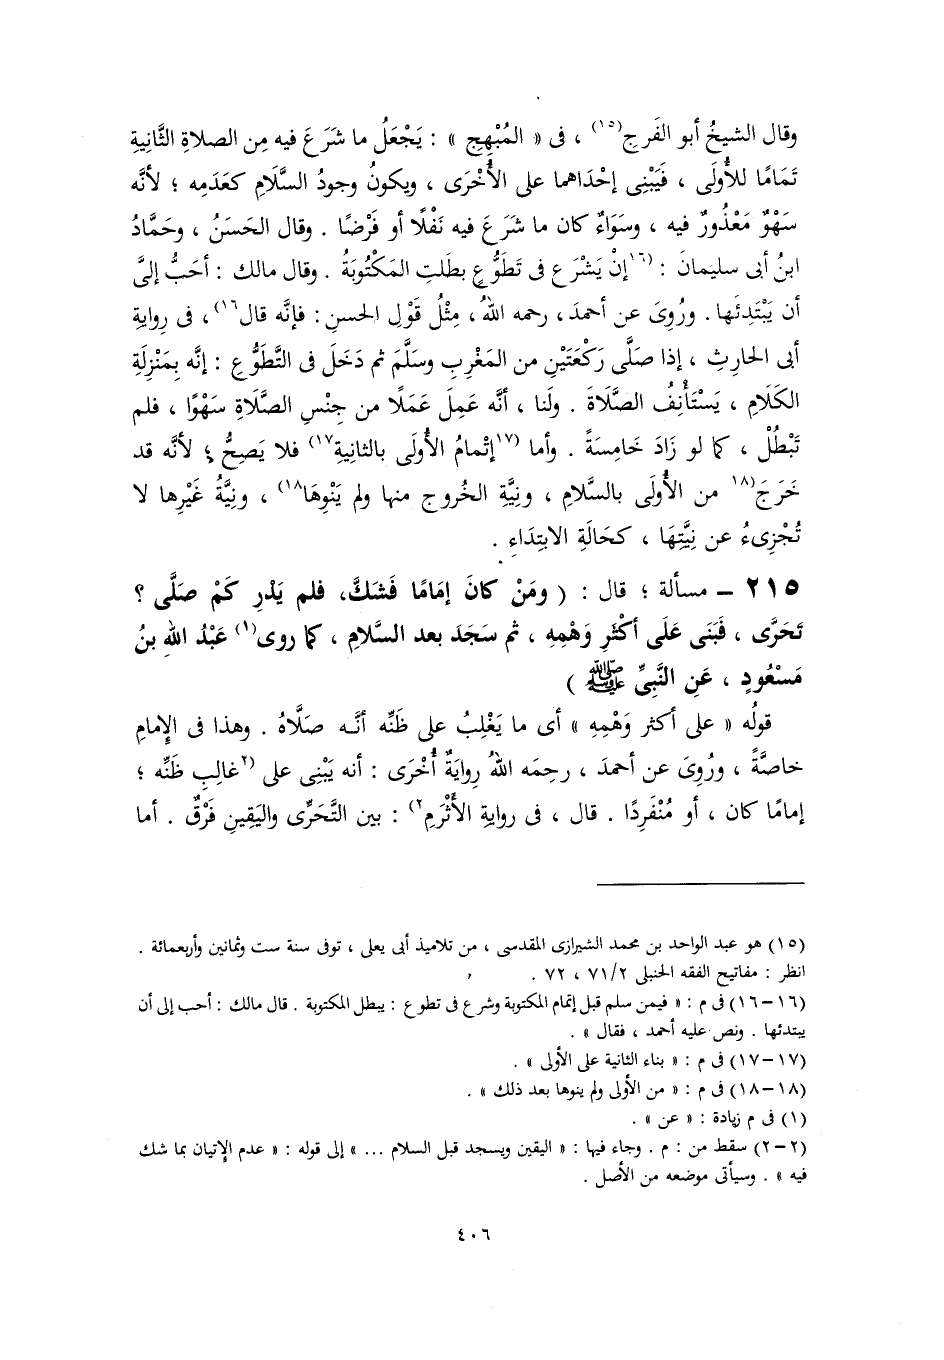 وقال الشيخُ أبو الفَرجِ(١٥) ، فى « المُبْهِجِ » : يَجْعَلُ ما شَرَعَ فيه مِن الصلاةِ الثَّانِيةِ
تَمَامًا للأُولَى ، فَيَبْنِى إحْدَاهما على الأُخْرَى ، ويكونُ وجودُ السَّلَامِ كعَدَمِه ؛ لأنَّه
سَهْوٌ مَعْذُورٌ فيه ، وسَوَاءٌ كان ما شَرَعَ فيه نَفْلًا أو فَرْضًا . وقال الحَسَنُ ، وحَمَّادُ
ابنُ أبى سليمانَ : (١٦إنْ يَشْرَع فى تَطَوُّعٍ بطَلتِ المَكْتُوبَةُ . وقال مالك : أحَبُّ إلىَّ
أن يَبْتَدِئَها . ورُوِىَ عن أحمدَ، رحمه اللهُ ، مِثْلُ قَوْلِ الحسنِ : فإنَّه قال١٦)، فى رِوايةِ
أبى الحارِثِ ، إذا صَلَّى رَكْعَتَيْنِ من المَغْرِبِ وسَلَّمَ ثم دَخَلَ فى التَّطَوُّعِ : إنَّه بِمَنْزِلَةِ
الكَلَامِ ، يَسْتَأْنِفُ الصَّلَاةَ . ولَنا ، أنَّه عَمِلَ عَمَلًا من جِنْسِ الصَّلَاةِ سَهْوًا ، فلم
تَبْطُلْ ، كما لو زَادَ خَامِسَةً . وأما (١٧إتْمامُ الأُولَى بالثانِيةِ١٧) فلا يَصِحُّ ؛ لأنَّه قد
خَرَجَ(١٨ من الأُولَى بالسَّلامِ ، ونِيَّةِ الخُروجِ منها ولم يَنْوِهَا١٨) ، ونِيَّةُ غَيْرِها لا
تُجْزِىءُ عن نِيَّتِهَا ، كحَالَةِ الابتِدَاءِ .
٢١٥ – مسألة ؛ قال : ( ومَنْ كانَ إمَامًا فَشَكَّ، فلم يَدْرِ كَمْ صَلَّى ؟
تَحَرَّى ، فَبَنَى عَلَى أكْثَرِ وَهْمِهِ ، ثم سَجَدَ بعد السَّلامِ ، كما روى(١) عَبْدُ اللهِ بنُ
مَسْعُودٍ ، عَنِ النَّبِىِّ ﷺ )
قولُه « على أكثر وَهْمِهِ » أى ما يَغْلِبُ على ظَنِّه أنَّه صَلَّاهُ . وهذا فى الإِمامِ
خاصَّةً ، ورُوِىَ عن أحمدَ ، رحِمَه اللهُ رِوايَةٌ أُخْرَى : أنه يَبْنِى على (٢غالِبِ ظَنِّه ؛
إمامًا كان ، أو مُنْفَرِدًا . قال ، فى روايةِ الأَثْرَمِ٢) : بين التَّحَرِّى واليَقِينِ فَرْقٌ . أما
(١٥) هو عبد الواحد بن محمد الشيرازى المقدسى ، من تلاميذ أبى يعلى ، توفى سنة ست وثمانين وأربعمائة .
انظر : مفاتيح الفقه الحنبلى ٢/٧١ ، ٧٢ .
(١٦–١٦) فى م : « فيمن سلم قبل إتمام المكتوبة وشرع فى تطوع : يبطل المكتوبة . قال مالك : أحب إلى أن
يبتدئها . ونص عليه أحمد ، فقال » .
(١٧–١٧) فى م : « بناء الثانية على الأولى » .
(١٨–١٨) فى م : « من الأولى ولم ينوها بعد ذلك » .
(١) فى م زيادة : « عن » .
(٢–٢) سقط من : م . وجاء فيها : « اليقين ويسجد قبل السلام ... » إلى قوله : « عدم الإتيان بما شك
فيه » . وسيأتى موضعه من الأصل .
٤٠٦